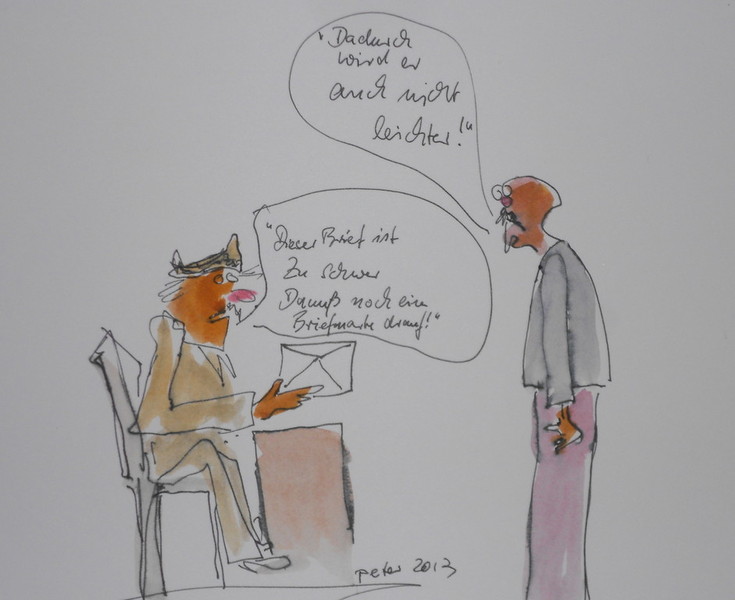 "Dieser Brief ist
Zu schwer
Da muß noch eine
Briefmarke drauf!"
"Dadurch
wird er
auch nicht
leichter!"
peter 2013